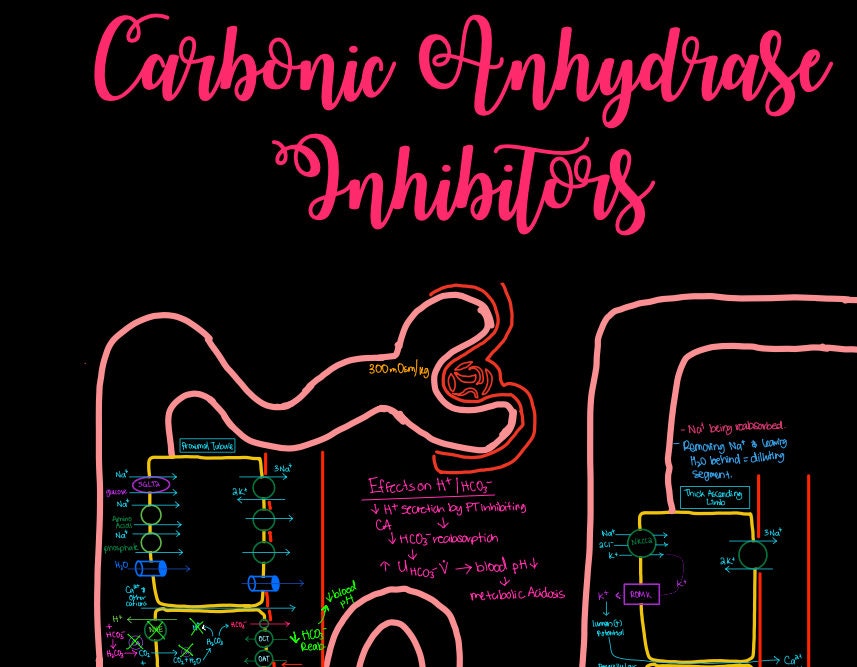 Carbonic Anhydrase
Inhibitors
300 mOsm/kg
Proximal Tubule
Na⁺
SGLT2
glucose
Na⁺
Amino
Acids
Na⁺
phosphate
H₂O
Ca²⁺ &
other
cations
3Na⁺
2K⁺
H⁺
NHE
+
HCO₃⁻
H₂CO₃
CO₂
+
CO₂+H₂O
H₂CO₃
HCO₃⁻
BCT
OAT
↓ HCO₃⁻
Reab
↓ blood
pH
Effects on H⁺/HCO₃⁻
↓ H⁺ secretion by PT inhibiting
CA ↓
↓ HCO₃⁻ reabsorption
↓
↑ U HCO₃⁻ V̇ → blood pH ↓
↓
metabolic Acidosis
- Na⁺ being reabsorbed.
- Removing Na⁺ & leaving
H₂O behind = diluting
segment.
Thick Ascending
Limb
Na⁺
2Cl⁻
K⁺
NKCC2
3Na⁺
2K⁺
K⁺
ROMK
K⁺
lumen (+)
Potential
Ca²⁺